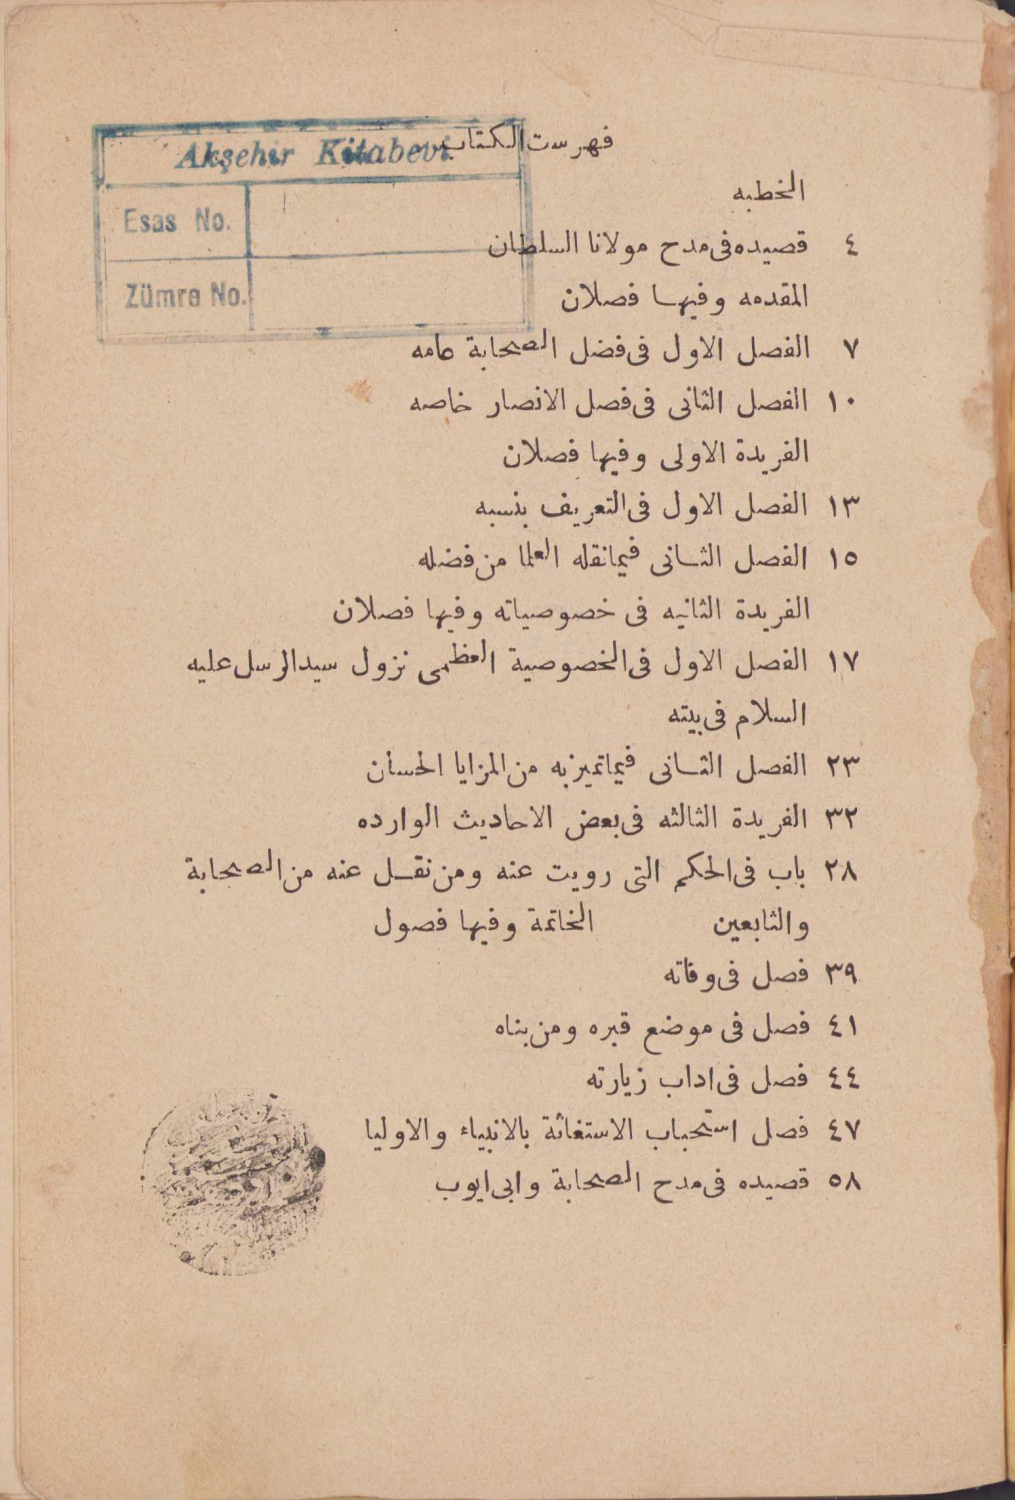 فهرست الكتاب
Akşehir Kitabevi
Esas No.
Zümre No.
الخطبه
٤ قصيده فى مدح مولانا السلطان
المقدمه وفيها فصلان
٧ الفصل الاول فى فضل الصحابة عامه
١٠ الفصل الثانى فى فصل الانصار خاصه
الفريدة الاولى وفيها فصلان
١٣ الفصل الاول فى التعريف بنسبه
١٥ الفصل الثانى فيما نقله العلما من فضله
الفريدة الثانيه فى خصوصياته وفيها فصلان
١٧ الفصل الاول فى الخصوصية العظمى نزول سيد الرسل عليه
السلام فى بيته
٢٣ الفصل الثانى فيما تميز به من المزايا الحسان
٣٢ الفريدة الثالثه فى بعض الاحاديث الوارده
٢٨ باب فى الحكم التى رويت عنه ومن نقل عنه من الصحابة
والتابعين الخاتمة وفيها فصول
٣٩ فصل فى وفاته
٤١ فصل فى موضع قبره ومن بناه
٤٤ فصل فى اداب زيارته
٤٧ فصل استحباب الاستغاثة بالانبياء والاوليا
٥٨ قصيده فى مدح الصحابة وابى ايوب